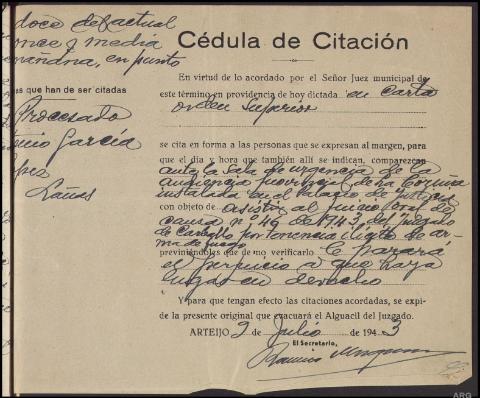 doce del actual
once y media
mañana, en punto
as que han de ser citadas
Procesado
García
Cédula de Citación
En virtud de lo acordado por el Señor Juez municipal de
este término en providencia de hoy dictada en carta
orden superior
se cita en forma a las personas que se expresan al margen, para
que el día y hora que también allí se indican, comparezcan
ante la Sala de urgencia de la
Audiencia provincial de La Coruña
instalada en el Palacio de Justicia
con objeto de asistir al juicio oral de
causa nº 46 de 1943 del Juzgado
de Carballo por tenencia ilícita de ar-
ma de fuego
previniéndoles que de no verificarlo le parará
el perjuicio a que haya
lugar en derecho
Y para que tengan efecto las citaciones acordadas, se expi-
de la presente original que evacuará el Alguacil del Juzgado.
ARTEIJO 9 de Julio de 1943
El Secretario,
ARG